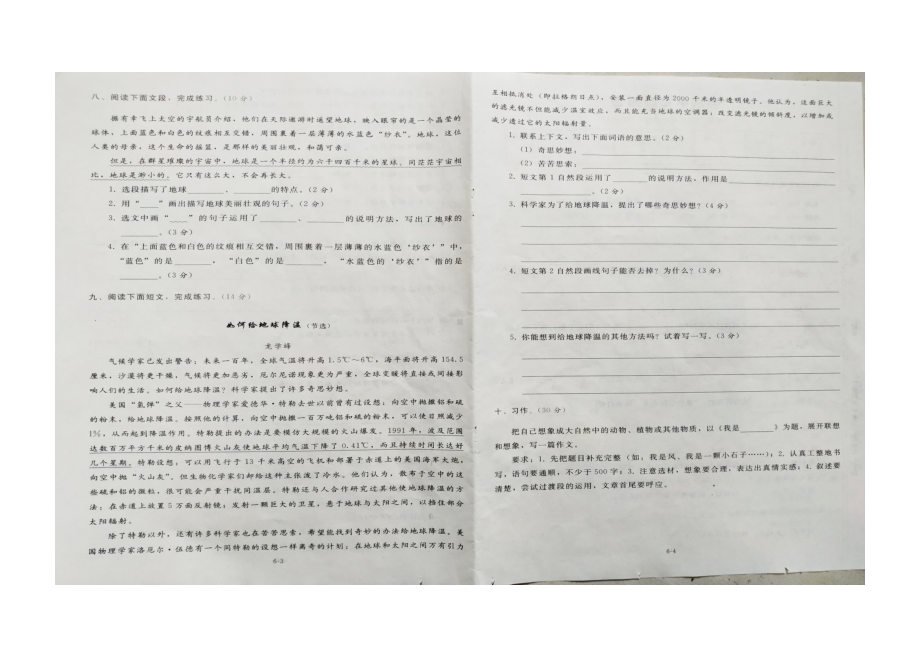 八、阅读下面文段，完成练习。（10分）
据有幸飞上太空的宇航员介绍，他们在天际遨游时遥望地球，映入眼帘的是一个晶莹的
球体，上面蓝色和白色的纹痕相互交错，周围裹着一层薄薄的水蓝色“纱衣”。地球，这位
人类的母亲，这个生命的摇篮，是那样的美丽壮观，和蔼可亲。
但是，在群星璀璨的宇宙中，地球是一个半径约为六千四百千米的星球。同茫茫宇宙相
比，地球是渺小的。它只有这么大，不会再长大。
1．选段描写了地球________、________的特点。（2分）
2．用“____”画出描写地球美丽壮观的句子。（2分）
3．选文中画“____”的句子运用了________、________的说明方法，写出了地球的
________。（3分）
4．在“上面蓝色和白色的纹痕相互交错，周围裹着一层薄薄的水蓝色‘纱衣’”中，
“蓝色”的是________，“白色”的是________，“水蓝色的‘纱衣’”指的是
________。（3分）
九、阅读下面短文，完成练习。（14分）
如何给地球降温（节选）
龙学锋
气候学家已发出警告：未来一百年，全球气温将升高1.5℃～6℃，海平面将升高154.5
厘米，沙漠将更干燥，气候将更加恶劣，厄尔尼诺现象更为严重，全球变暖将直接或间接影
响人们的生活。如何给地球降温？科学家提出了许多奇思妙想。
美国“氢弹”之父——物理学家爱德华·特勒去世以前曾有过设想：向空中抛撒铝和硫
的粉末，给地球降温。按照他的计算，向空中抛撒一百万吨铝和硫的粉末，可以使日照减少
1%，从而起到降温作用。特勒提出的办法是要模仿大规模的火山爆发。1991年，波及范围
达数百万平方千米的皮纳图博火山灰使地球平均气温下降了0.41℃，而且持续时间长达好
几个星期。特勒设想：可以用飞行于13千米高空的飞机和部署于赤道上的美国海军大炮，
向空中抛“火山灰”。但生物化学家们却给这种主张泼了冷水。他们认为，散布于空中的这
些硫和铝的微粒，很可能会严重干扰同温层。特勒还与人合作研究过其他使地球降温的方
法：在赤道上放置5万面反射镜；发射一颗巨大的卫星，悬于地球与太阳之间，以挡住部分
太阳辐射。
除了特勒以外，还有许多科学家也在苦苦思索，希望能找到奇妙的办法给地球降温。美
国物理学家洛厄尔·伍德有一个同特勒的设想一样离奇的计划：在地球和太阳之间万有引力
6-3
互相抵消处（即拉格朗日点），安装一面直径为2000千米的半透明镜子。他认为，这面巨大
的滤光镜不但能减少温室效应，而且能充当地球的空调器；改变滤光镜的倾斜度，以增加或
减少透过它的太阳辐射量。
1．联系上下文，写出下面词语的意思。（2分）
（1）奇思妙想：________
（2）苦苦思索：________
2．短文第1自然段运用了________的说明方法，作用是________
________。（2分）
3．科学家为了给地球降温，提出了哪些奇思妙想？（4分）
4．短文第2自然段画线句子能否去掉？为什么？（3分）
5．你能想到给地球降温的其他方法吗？试着写一写。（3分）
十、习作。（30分）
把自己想象成大自然中的动物、植物或其他物质，以《我是________》为题，展开联想
和想象，写一篇作文。
要求：1．先把题目补充完整（如：我是风、我是一颗小石子……）；2．认真工整地书
写，语句要通顺，不少于500字；3．注意选材，想象要合理，表达出真情实感；4．叙述要
清楚，尝试过渡段的运用，文章首尾要呼应。
6-4